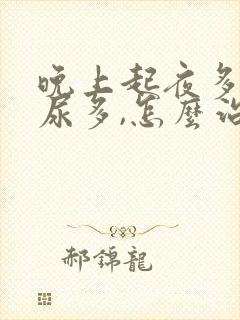 晚上起夜多
尿多,怎麼治
郝錦龍